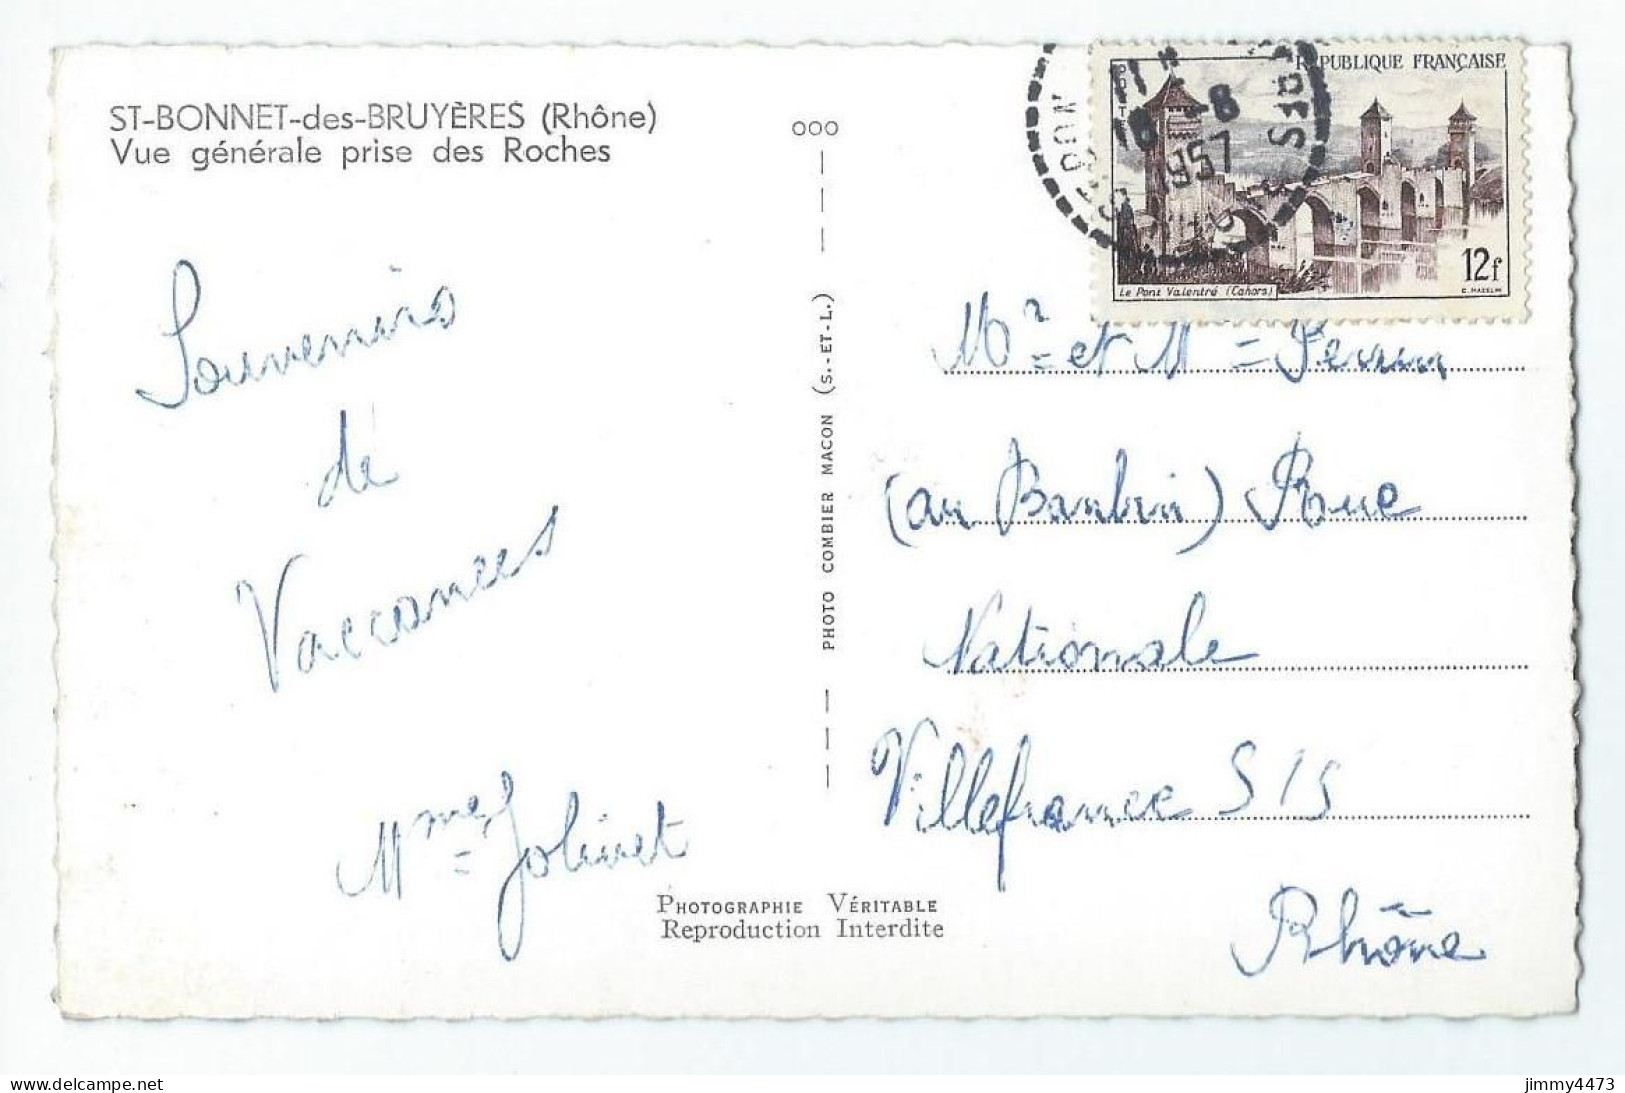 ST-BONNET-des-BRUYÈRES (Rhône)
Vue générale prise des Roches
Souvenirs
de
Vaccances
Mme Jolivet
PHOTO COMBIER MACON (S.-ET-L.)
PHOTOGRAPHIE VÉRITABLE
Reproduction Interdite
RÉPUBLIQUE FRANÇAISE
POSTES
12f
Le Pont Valentré (Cahors)
11 H
18 -8
1957
Mr et Me Perrin
(au Barbin) Rue
Nationale
Villefrance S/S
Rhône
jimmy4473